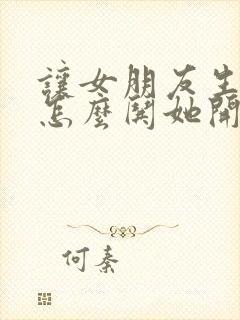 讓女朋友生
怎麼鬨她開
何秦